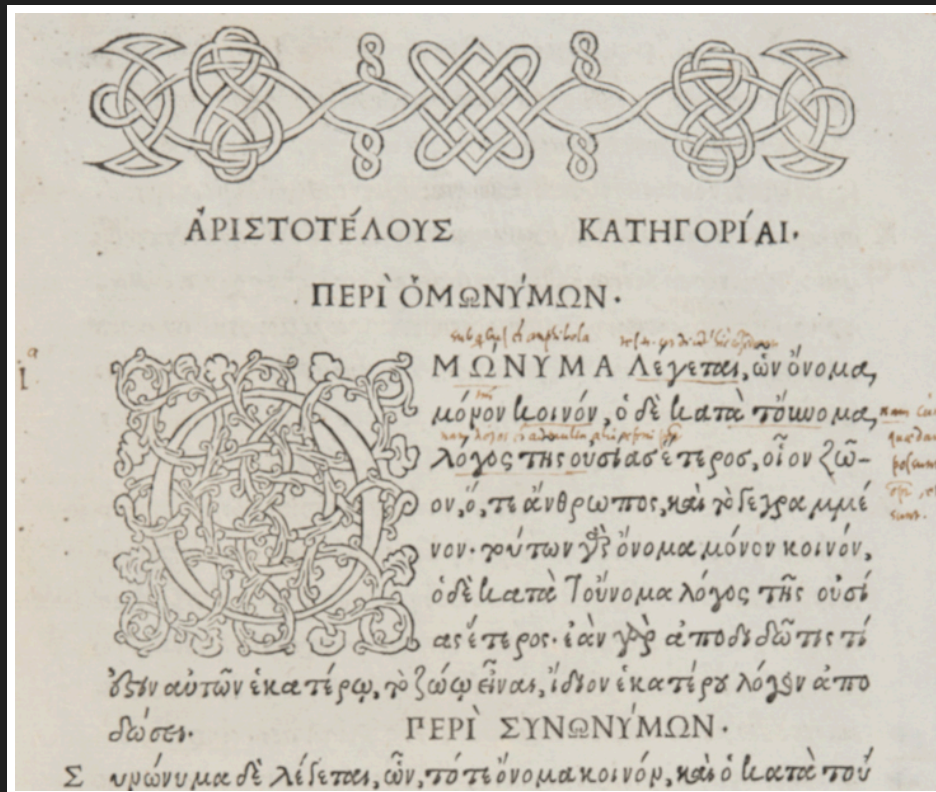 ἈΡΙΣΤΟΤΈΛΟΥΣ ΚΑΤΗΓΟΡΊΑΙ·
ΠΕΡῚ ὉΜΩΝΎΜΩΝ·
ὉΜΩΝΥΜΑ λέγεται, ὧν ὄνομα
μόνον κοινόν, ὁ δὲ κατὰ τοὔνομα
λόγος τῆς οὐσίας ἕτερος, οἷον ζῶ-
ον, ὅ, τε ἄνθρωπος, καὶ τὸ γεγραμμέ
νον· τούτων γὰρ ὄνομα μόνον κοινόν,
ὁ δὲ κατὰ τοὔνομα λόγος τῆς οὐσί
ας ἕτερος· ἐὰν γὰρ ἀποδιδῶ τις τί
ἐστιν αὐτῶν ἑκατέρῳ, τὸ ζώῳ εἶναι, ἴδιον ἑκατέρου λόγον ἀπο
δώσει·
ΠΕΡῚ ΣΥΝΩΝΎΜΩΝ·
Συνώνυμα δὲ λέγεται, ὧν, τό τε ὄνομα κοινόν, καὶ ὁ κατὰ τοὔ